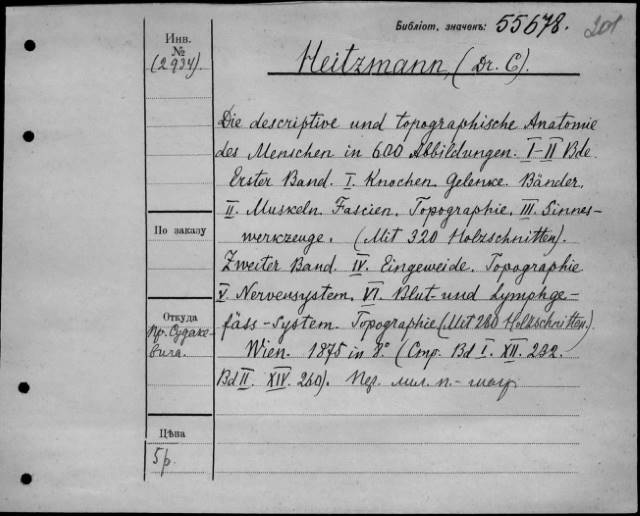 Библіот. значекъ: 55678. 201
Инв.
№
(2934).
Heitzmann, (Dr. C).
Die descriptive und topographische Anatomie
des Menschen in 600 Abbildungen. I-II Bde.
Erster Band. I. Knochen. Gelenke. Bänder.
II. Muskeln. Fascien. Topographie. III. Sinnes-
werkzeuge. (Mit 320 Holzschnitten).
Zweiter Band. IV. Eingeweide. Topographie
V. Nervensystem. VI. Blut- und Lymphge-
fäss-System. Topographie (Mit 280 Holzschnitten).
Wien. 1875 in 8° (Стр. Bd I. XII. 232.
Bd II. XIV. 260).
По заказу
Откуда
Пр. Судаке-
вича.
Цѣна
5 р.